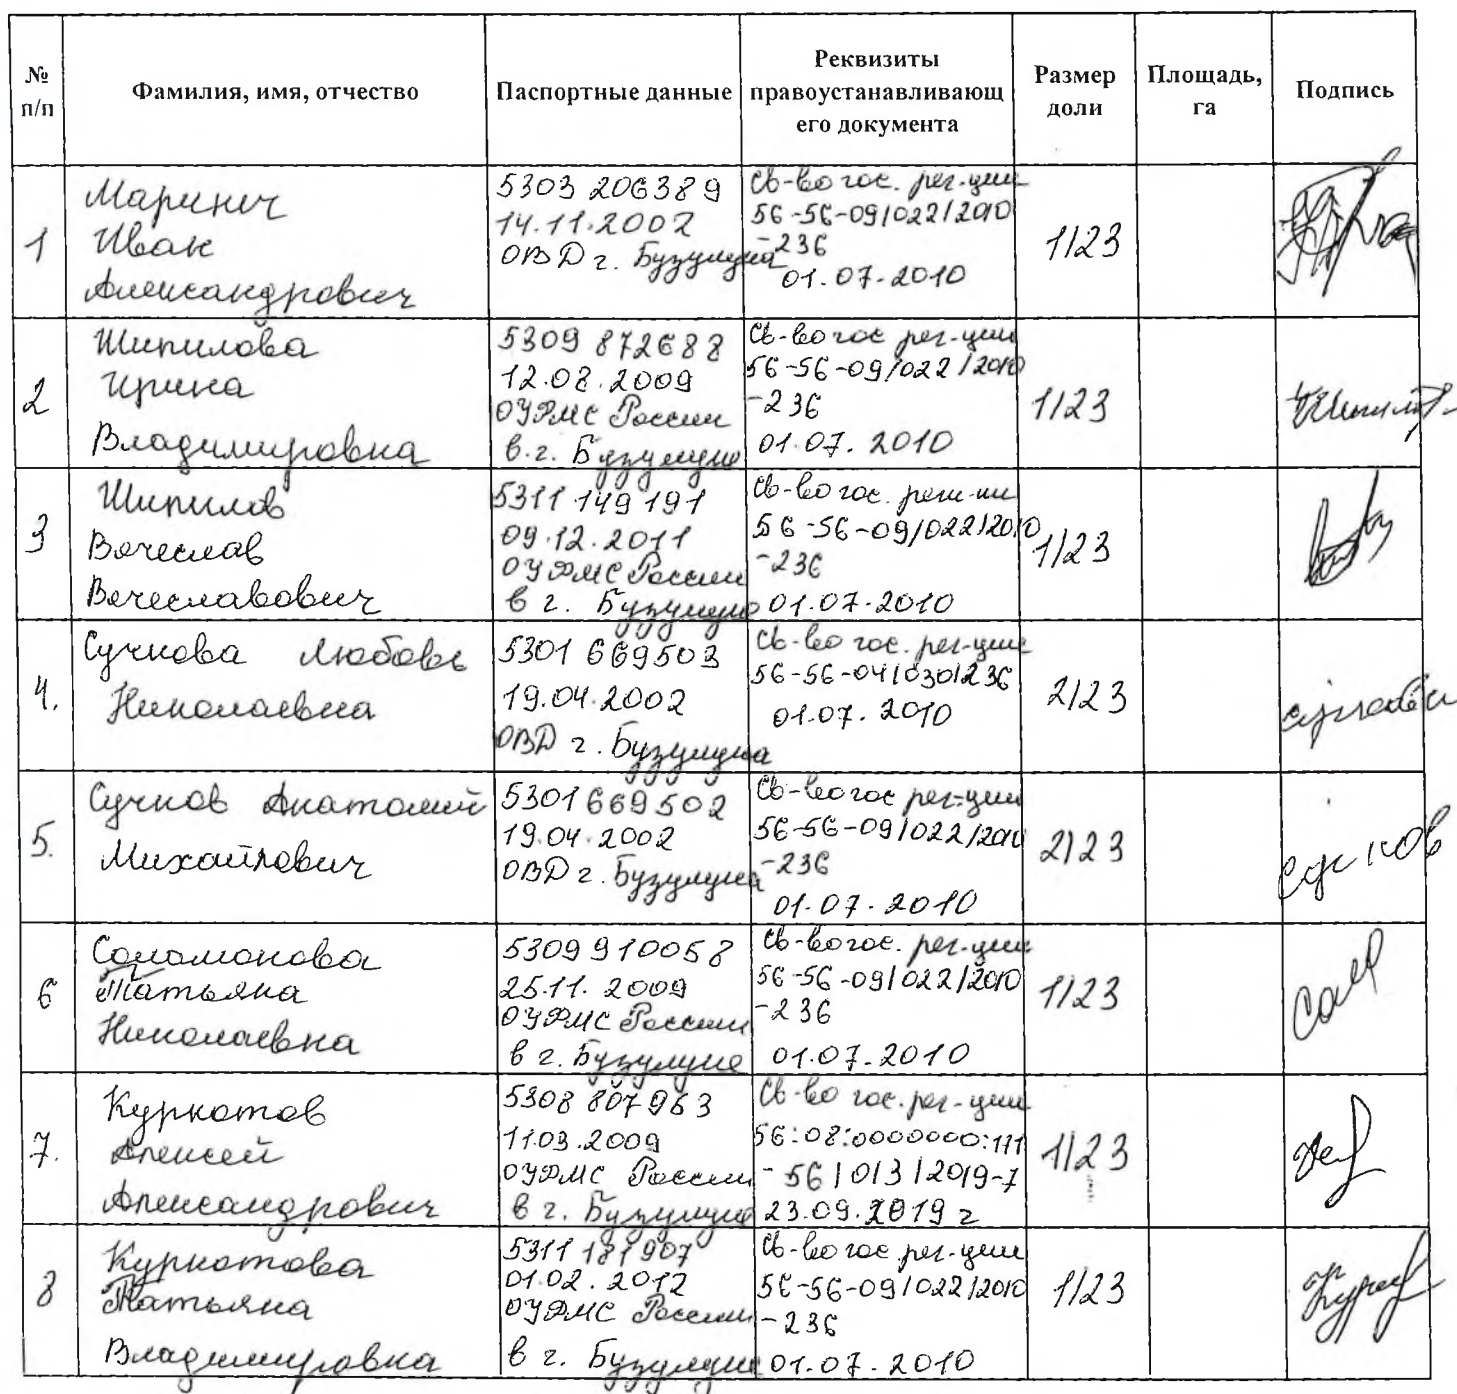 № п/п
Фамилия, имя, отчество
Паспортные данные
Реквизиты
правоустанавливающ
его документа
Размер
доли
Площадь,
га
Подпись
1
Маринич
Иван
Александрович
5303 206389
14.11.2002
ОВД г. Бузулука
Св-во гос. рег-ции
56-56-09/022/2010
-236
01.07.2010
1/23
2
Шипилова
Ирина
Владимировна
5309 872688
12.08.2009
ОУФМС России
в г. Бузулуке
Св-во гос рег-ции
56-56-09/022/2010
-236
01.07.2010
1/23
3
Шипилов
Вячеслав
Вячеславович
5311 149191
09.12.2011
ОУФМС России
в г. Бузулуке
Св-во гос.
56-56-09/022/2010
-236
01.07.2010
1/23
4.
Сучкова Любовь
Николаевна
5301 669503
19.04.2002
ОВД г. Бузулука
Св-во гос. рег-ции
56-56-04/030/236
01.07.2010
2/23
5.
Сучков Анатолий
Михайлович
5301 669502
19.04.2002
ОВД г. Бузулука
Св-во гос рег-ции
56-56-09/022/2010
-236
01.07.2010
2/23
Сучков
6
Соламонова
Татьяна
Николаевна
5309 910058
25.11.2009
ОУФМС России
в г. Бузулуке
Св-во гос. рег-ции
56-56-09/022/2010
-236
01.07.2010
1/23
7.
Куркотов
Алексей
Александрович
5308 807963
11.03.2009
ОУФМС России
в г. Бузулуке
Св-во гос. рег-ции
56:08:0000000:111
-56/013/2019-7
23.09.2019 г
1/23
8
Куркотова
Татьяна
Владимировна
5311 181907
01.02.2012
ОУФМС России
в г. Бузулуке
Св-во гос рег-ции
56-56-09/022/2010
-236
01.07.2010
1/23